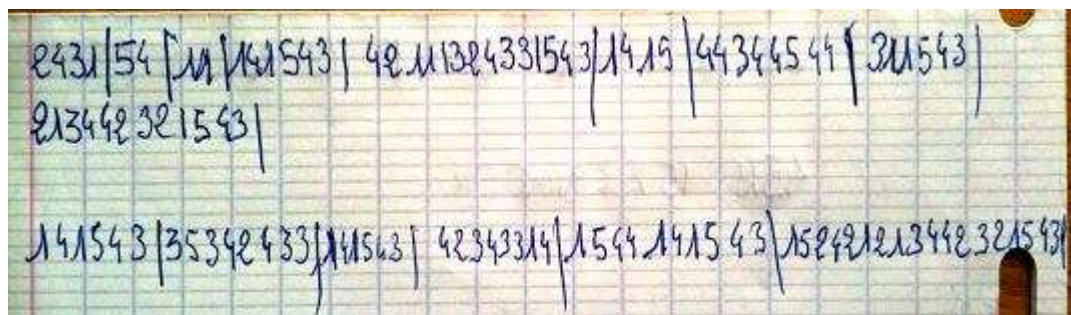 2431|54|11|141543|42111324331543|1415|44344544|311543|
213442321543|
141543|35342433|141543|42343314|1544141543|152421213442321543|